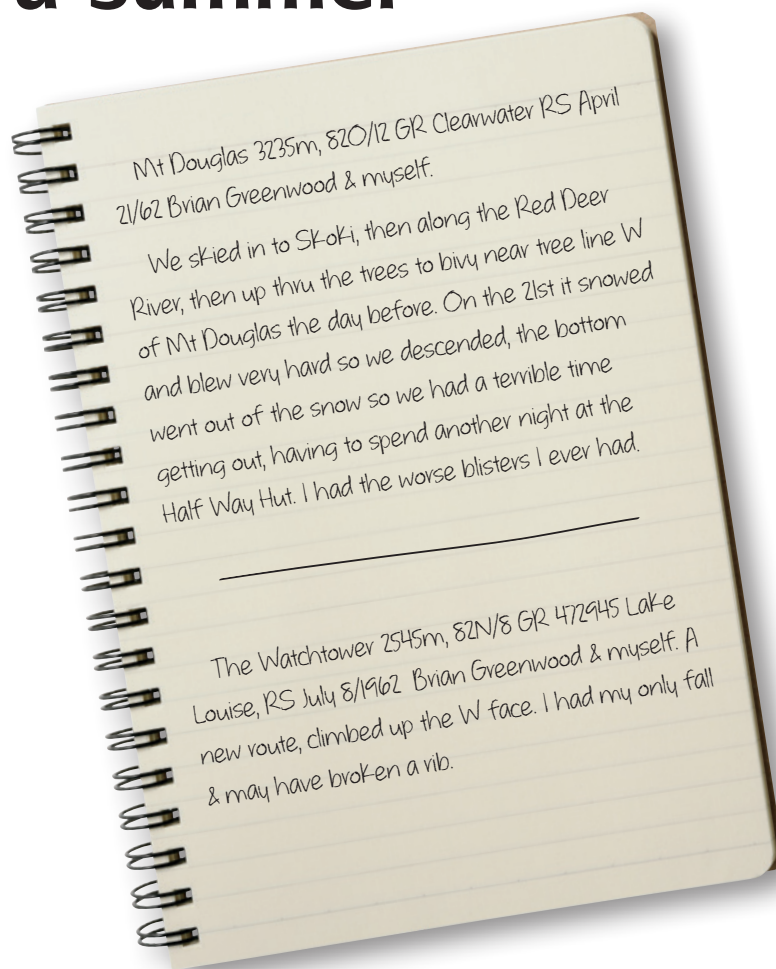 a Summer
Mt Douglas 3235m, 82O/12 GR Clearwater RS April
21/62 Brian Greenwood & myself.
We skied in to Skoki, then along the Red Deer
River, then up thru the trees to bivy near tree line W
of Mt Douglas the day before. On the 21st it snowed
and blew very hard so we descended, the bottom
went out of the snow so we had a terrible time
getting out, having to spend another night at the
Half Way Hut. I had the worse blisters I ever had.
The Watchtower 2545m, 82N/8 GR 472945 Lake
Louise, RS July 8/1962 Brian Greenwood & myself. A
new route, climbed up the W face. I had my only fall
& may have broken a rib.